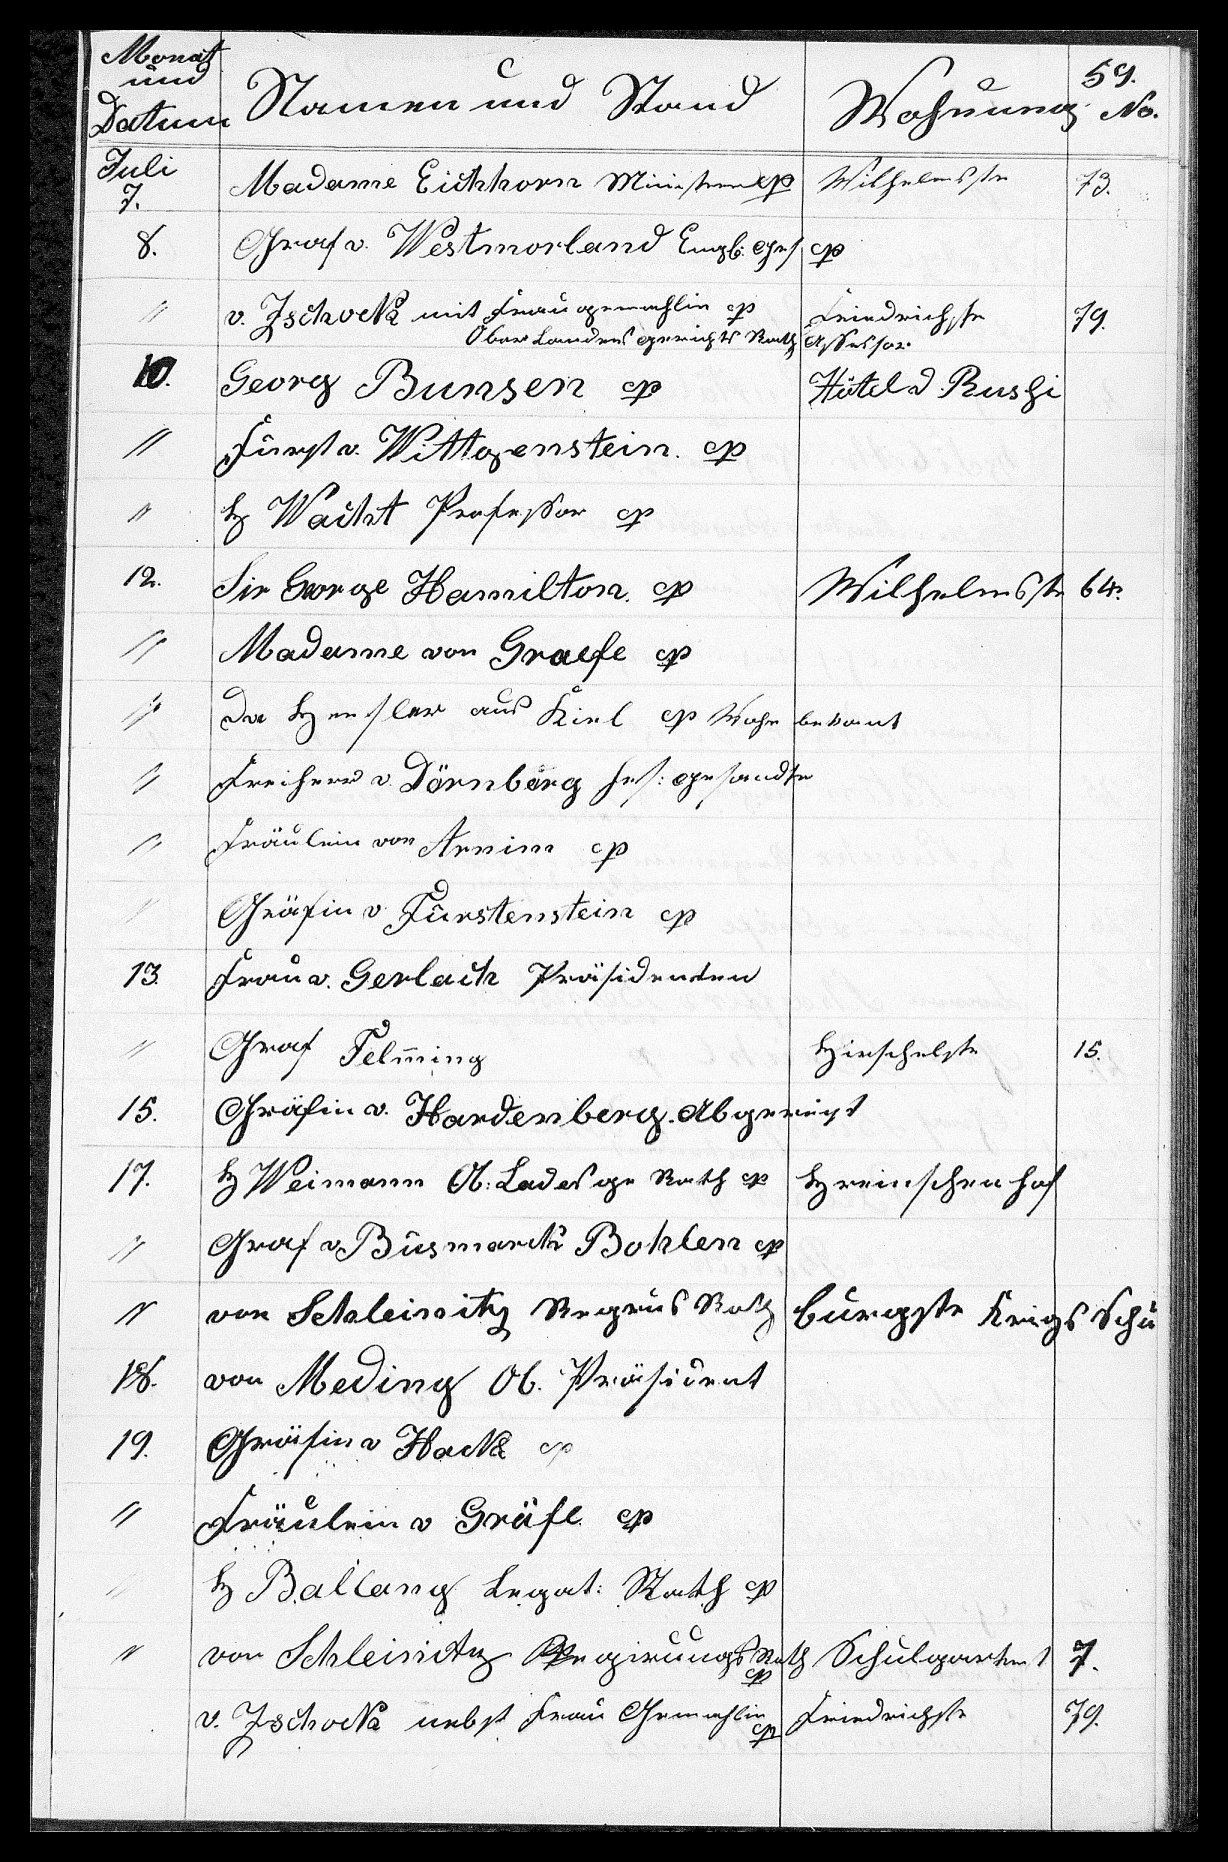 59.
Monat und Datum Namen und Stand Wohnung No.
Juli
7. Madame Eichhorn Ministern cp Wilhelmsstr 73.
8. Graf v. Westmorland Engl: Ges cp
" v. Zschock mit Frau gemahlin cp Friedrichstr 79.
Ober Landes gerichts Rath Assessor
10. Georg Bunsen cp Hôtel d. Rushi
" Fürst v. Wittgenstein. cp
" H Wacht Professor cp
12. Sir George Hamilton. cp Wilhelmsstr 64.
" Madame von Graefe cp
" Dr Hensler aus Kiel cp Wohn bekant
" Freiherr v. Dörnberg hes: Gesandte
" Fräulein von Arnim cp
" Gräfin v. Fürstenstein cp
13. Frau v. Gerlach Präsidenten
" Graf Felm̄ing Hirschelstr 15.
15. Gräfin v. Hardenberg. Abgereist
17. H Weimann Ob: Lades ge Rath cp H reinschen hof
" Graf v Büsmarck Bohlen cp
" von Schleinitz Regrus Rath burgstr Krigs Schu
18. von Meding Ob. Präsident
19. Gräfin v Hack cp
" Fräulein v Gräfe cp
" H Ballang Legat: Rath cp
" von Schleinitz Regirungs Rath cp Schulgarten 1 7.
v. Zschock nebst Frau Gemahlin cp Friedrichstr 79.